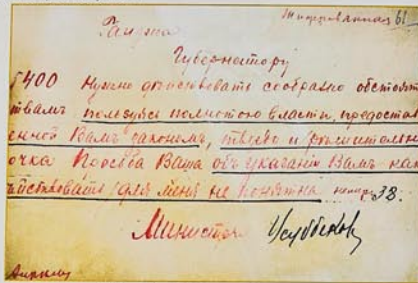 Шифрованная 61
Губернатору
5400 Нужно действовать сообразно обстоят
твамъ пользуясь полнотою власти, предостав
енной Вамъ закономъ, твердо и решительно
очка Просьба Ваша объ указании Вамъ как
действовать для меня не понятна 38.
Министр Усуббеков